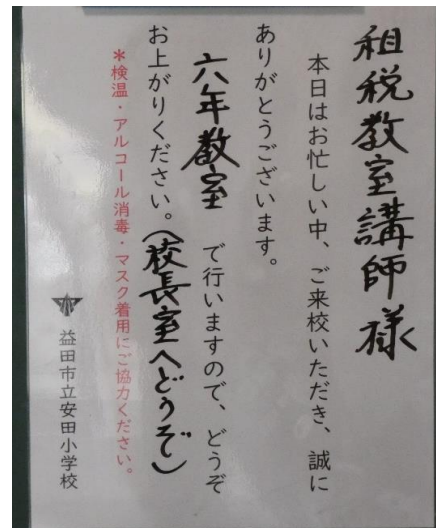 租税教室講師様
本日はお忙しい中、ご来校いただき、誠に
ありがとうございます。
六年教室 で行いますので、どうぞ
お上がりください。(校長室へどうぞ)
*検温・アルコール消毒・マスク着用にご協力ください。
益田市立安田小学校